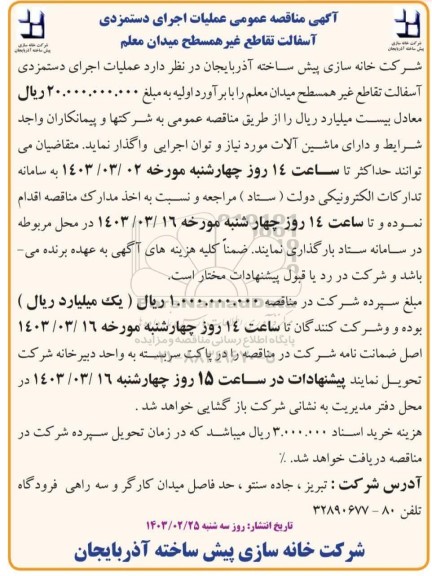 آگهی مناقصه عمومی عملیات اجرای دستمزدی
آسفالت تقاطع غیرهمسطح میدان معلم
شرکت خانه سازی
پیش ساخته آذربایجان
شرکت خانه سازی
پیش ساخته آذربایجان
شرکت خانه سازی پیش ساخته آذربایجان در نظر دارد عملیات اجرای دستمزدی
آسفالت تقاطع غیر همسطح میدان معلم را با برآورد اولیه به مبلغ ۲۰.۰۰۰.۰۰۰.۰۰۰ ریال
معادل بیست میلیارد ریال را از طریق مناقصه عمومی به شرکتها و پیمانکاران واجد
شرایط و دارای ماشین آلات مورد نیاز و توان اجرایی واگذار نماید. متقاضیان می
توانند حداکثر تا ساعت ۱۴ روز چهارشنبه مورخه ۰۲ /۰۳ /۱۴۰۳ به سامانه
تدارکات الکترونیکی دولت ( ستاد ) مراجعه و نسبت به اخذ مدارک مناقصه اقدام
نموده و تا ساعت ۱۴ روز چهار شنبه مورخه ۱۶ /۰۳ /۱۴۰۳ در محل مربوطه
در سامانه ستاد بارگذاری نمایند. ضمناً کلیه هزینه های آگهی به عهده برنده می-
باشد و شرکت در رد یا قبول پیشنهادات مختار است.
مبلغ سپرده شرکت در مناقصه ۱.۰۰۰.۰۰۰.۰۰۰ ریال ( یک میلیارد ریال )
بوده و شرکت کنندگان تا ساعت ۱۴ روز چهارشنبه مورخه ۱۶ /۰۳ /۱۴۰۳
اصل ضمانت نامه شرکت در مناقصه را در پاکت سربسته به واحد دبیرخانه شرکت
تحویل نمایند پیشنهادات در ساعت ۱۵ روز چهارشنبه ۱۶ /۰۳ /۱۴۰۳ در
محل دفتر مدیریت به نشانی شرکت باز گشایی خواهد شد .
هزینه خرید اسناد ۳.۰۰۰.۰۰۰ ریال میباشد که در زمان تحویل سپرده شرکت در
مناقصه دریافت خواهد شد. ٪
آدرس شرکت : تبریز ، جاده سنتو ، حد فاصل میدان کارگر و سه راهی فرودگاه
تلفن ۸۰ - ۳۲۸۹۰۶۷۷
تاریخ انتشار: روز سه شنبه ۱۴۰۳/۰۲/۲۵
شرکت خانه سازی پیش ساخته آذربایجان